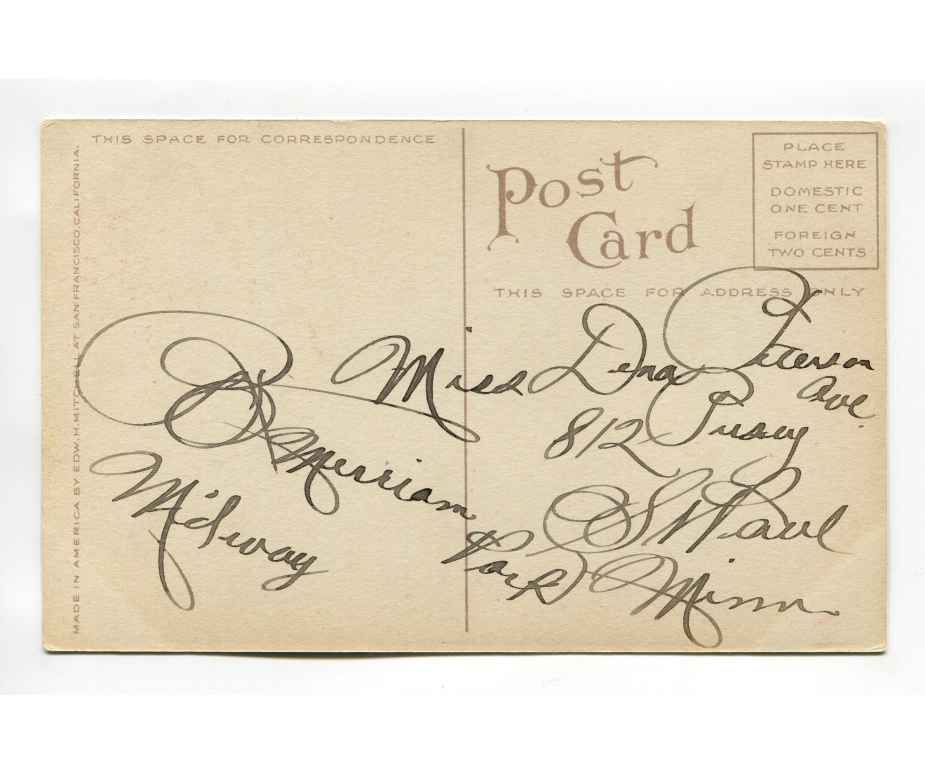 THIS SPACE FOR CORRESPONDENCE
MADE IN AMERICA BY EDW. H. MITCHELL AT SAN FRANCISCO, CALIFORNIA.
Post
Card
PLACE
STAMP HERE
DOMESTIC
ONE CENT
FOREIGN
TWO CENTS
THIS SPACE FOR ADDRESS ONLY
Miss Dena Peterson
812 Pusey Ave
St Paul
Minn
R
Merriam Park
Midway